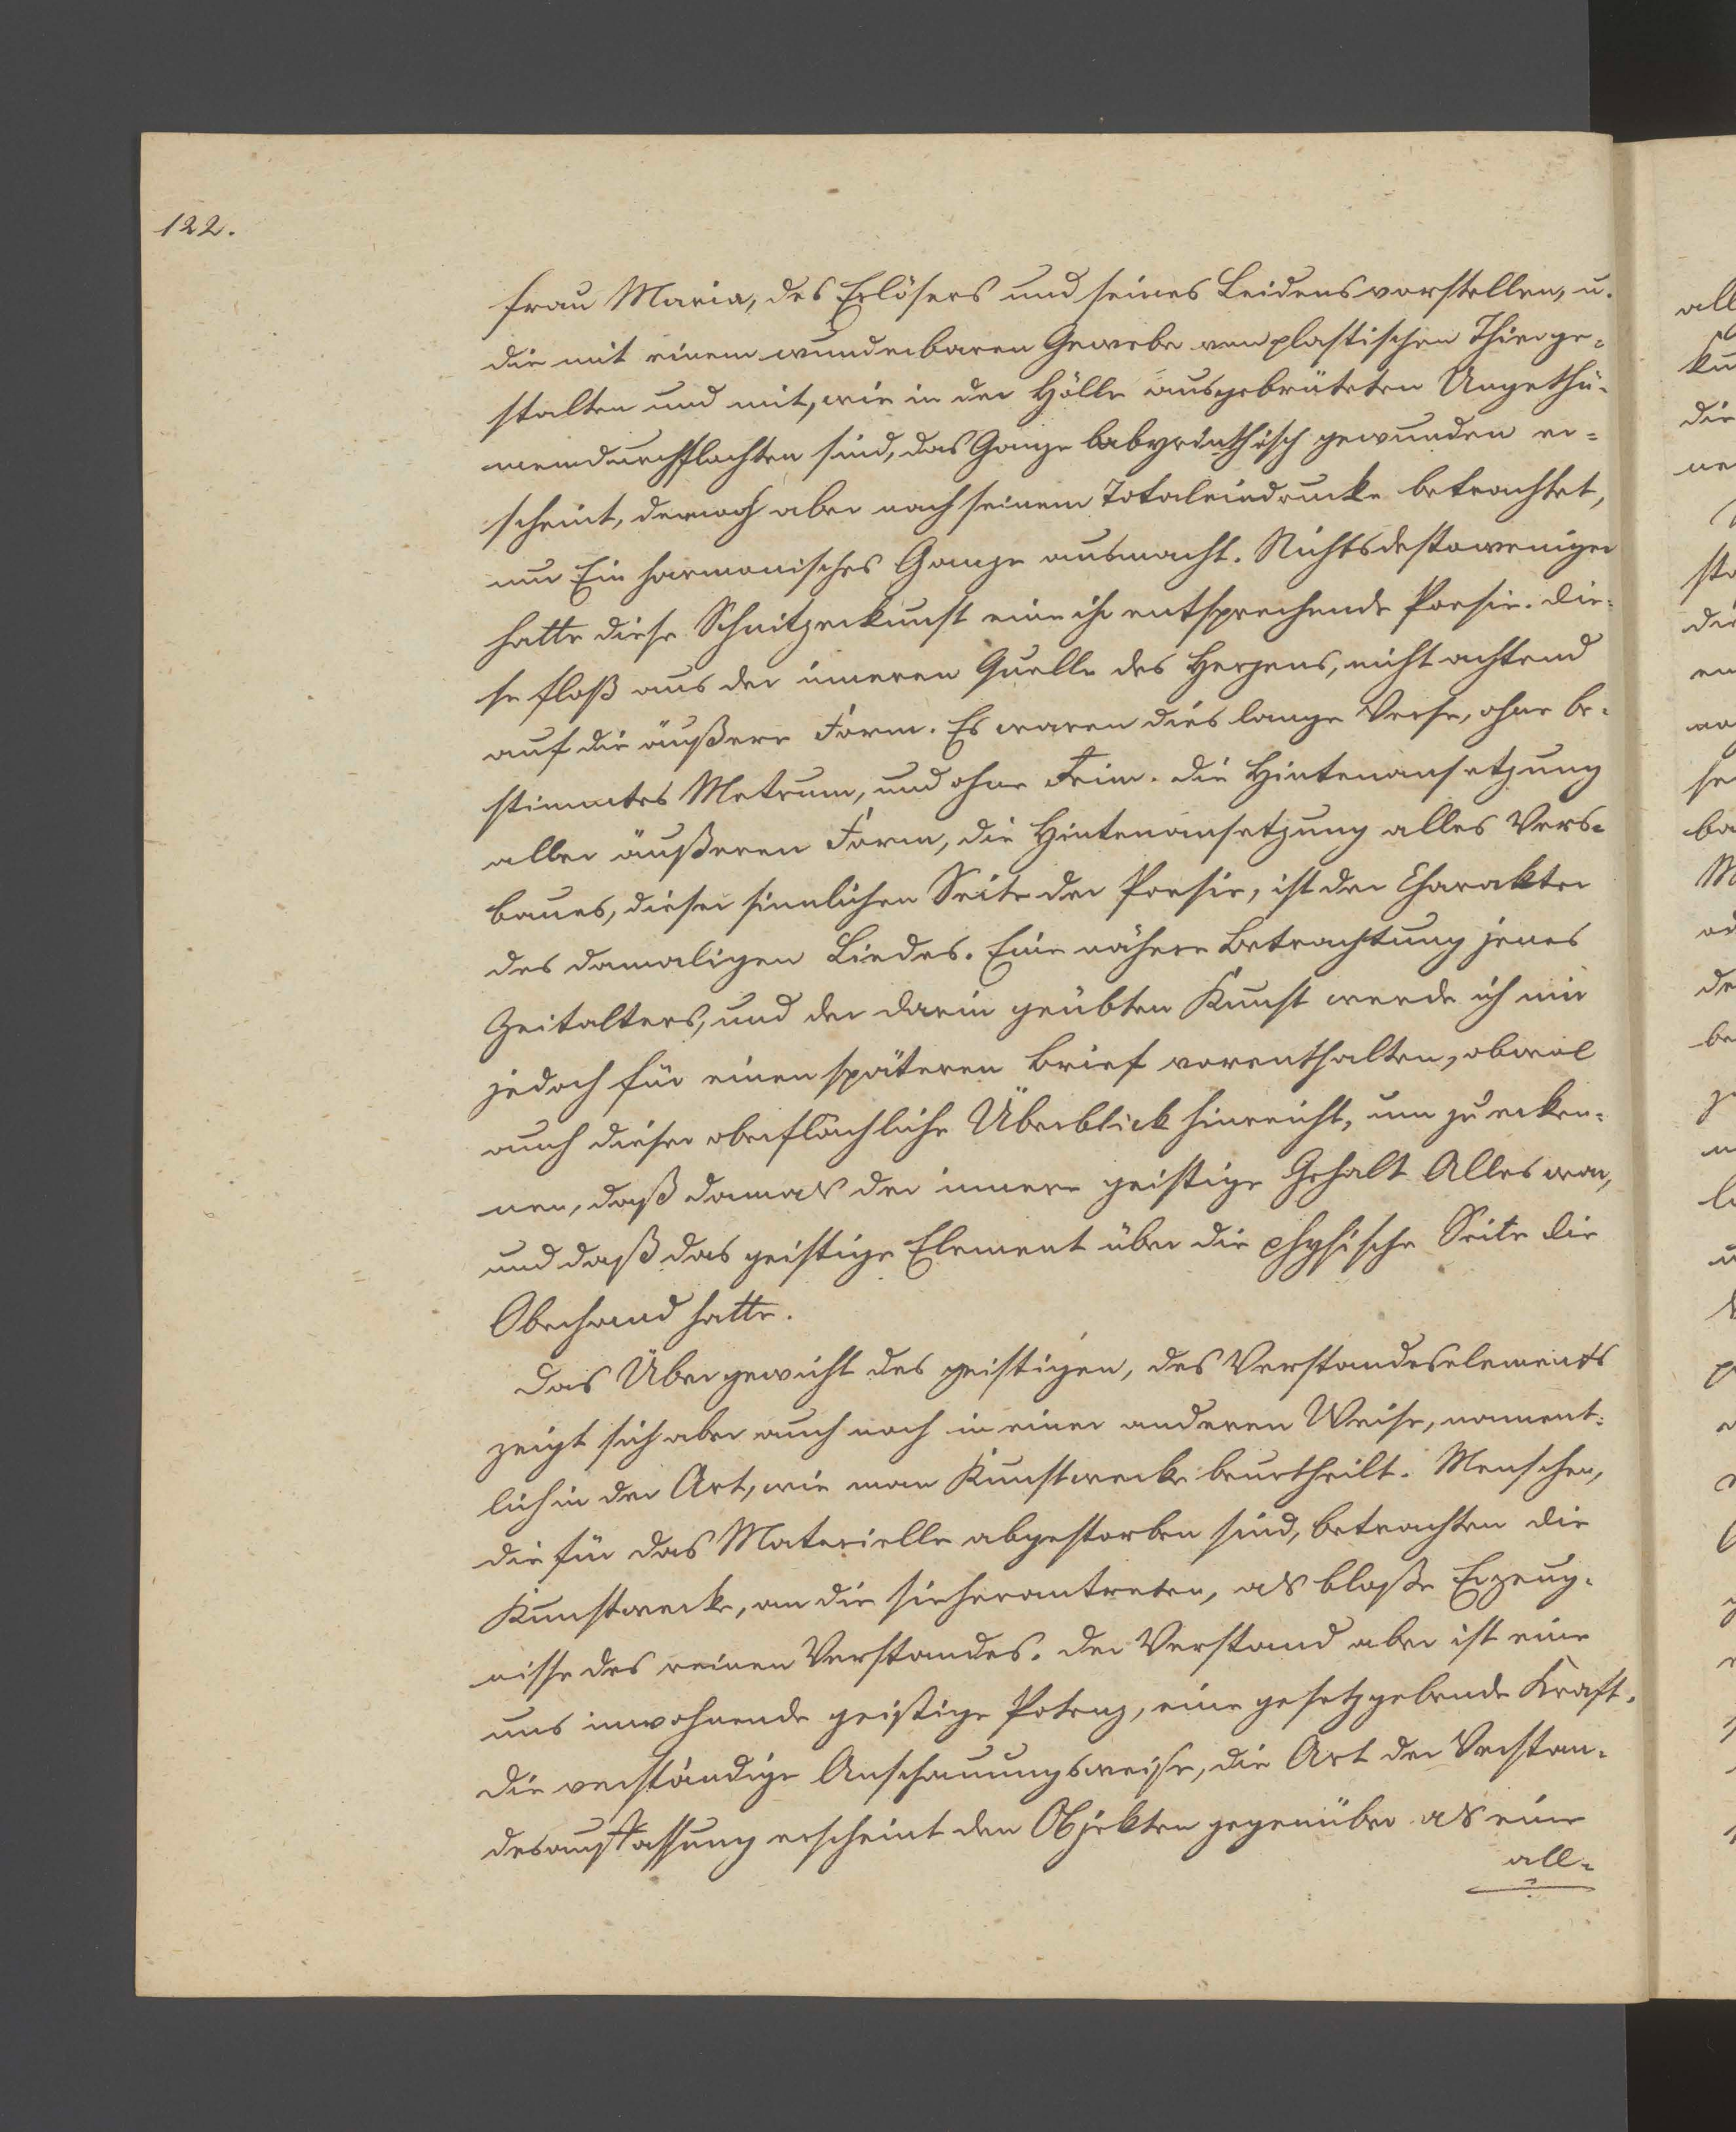 122.
frau Maria, des Erlösers und seines Leidens vorstellen, u.
die mit einem wunderbaren Gewebe von plastischen Thierge-
stalten und mit, wie in der Hölle ausgebrüteten Ungethü-
mern durchflochten sind, das Ganze labyrinthisch gewunden er-
scheint, dennoch aber nach seinem Totaleindrucke betrachtet,
nur Ein harmonisches Ganze ausmacht. Nichtsdestoweniger
hatte diese Schnitzerkunst eine ihr entsprechende Poesie. Die-
se floß aus der inneren Quelle des Herzens, nicht achtend
auf die äußere Form. Es waren dies lange Verse, ohne be-
stimmtes Metrum, und ohne Reim. Die Hintenansetzung
aller äußeren Form, die Hintenansetzung alles Vers-
baues, dieser sinnlichen Seite der Poesie, ist der Charakter
des damaligen Liedes. Eine nähere Betrachtung jenes
Zeitalters, und der darin geübten Kunst werde ich mir
jedoch für einen späteren Brief vorenthalten, obwol
auch dieser oberflächliche Überblick hinreicht, um zu erken-
nen, daß damals der innere geistige Gehalt Alles war,
und daß das geistige Element über die physische Seite die
Oberhand hatte.
Das Übergewicht des geistigen, des Verstandeselements
zeigt sich aber auch noch in einer anderen Weise, nament-
lich in der Art, wie man Kunstwerke beurtheilt. Menschen,
die für das Materielle abgestorben sind, betrachten die
Kunstwerke, an die sie herantreten, als bloße Erzeug-
nisse des reinen Verstandes. Der Verstand aber ist eine
uns inwohnende geistige Potenz, eine gesetzgebende Kraft.
Die verständige Anschauungsweise, die Art der Verstan-
desauffassung erscheint den Objekten gegenüber als eine
all-